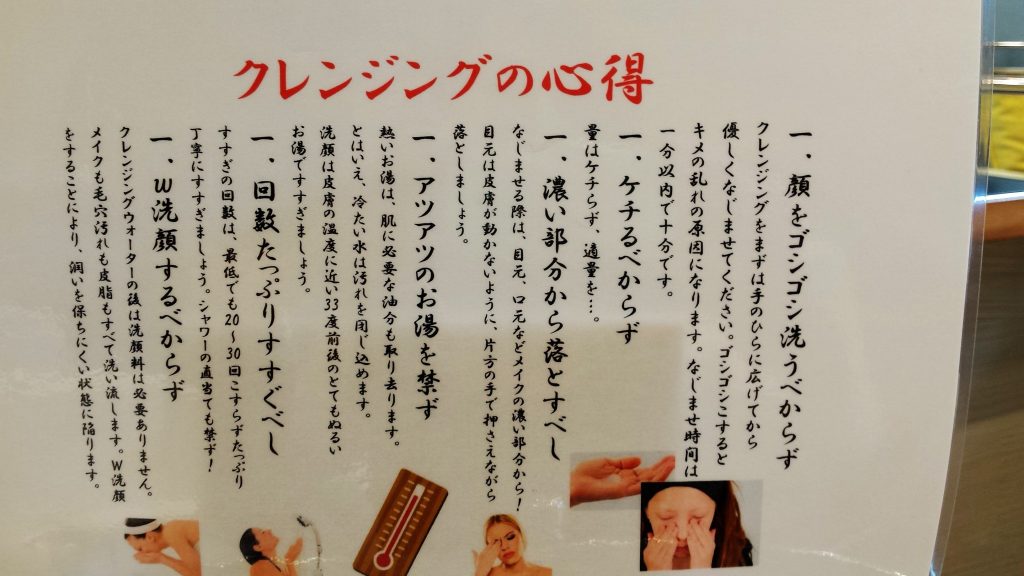 クレンジングの心得
一．顔をゴシゴシ洗うべからず
クレンジングをまずは手のひらに広げてから
優しくなじませてください。ゴシゴシこすると
キメの乱れの原因になります。なじませ時間は
一分以内で十分です。
一．ケチるべからず
量はケチらず、適量を…。
一．濃い部分から落とすべし
なじませる際は、目元、口元などメイクの濃い部分から！
目元は皮膚が動かないように、片方の手で押さえながら
落としましょう。
一．アツアツのお湯を禁ず
熱いお湯は、肌に必要な油分も取り去ります。
とはいえ、冷たい水は汚れを閉じ込めます。
洗顔は皮膚の温度に近い33度前後のとてもぬるい
お湯ですすぎましょう。
一．回数たっぷりすすぐべし
すすぎの回数は、最低でも20～30回こすらずたっぷり
丁寧にすすぎましょう。シャワーの直当ても禁ず！
一．W洗顔するべからず
クレンジングウォーターの後は洗顔料は必要ありません。
メイクも毛穴汚れも皮脂もすべて洗い流します。W洗顔
をすることにより、潤いを保ちにくい状態に陥ります。